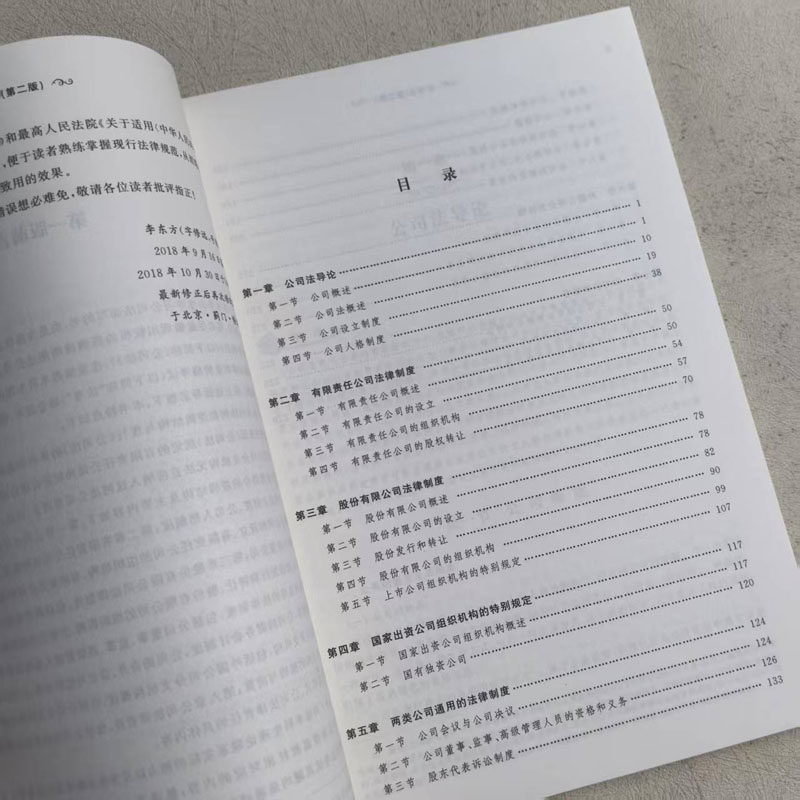 (第二版)
和最高人民法院《关于适用〈中华人民
,便于读者熟练掌握现行法律规范,
致用的效果。
错误想必难免,敬请各位读者批评指正!
李东方(字修远,
2018年9月16
2018年10月30日
最新修正后再次
于北京·蓟门·
目 录
第一章 公司法导论 1
第一节 公司概述 1
第二节 公司法概述 10
第三节 公司设立制度 19
第四节 公司人格制度 38
第二章 有限责任公司法律制度 50
第一节 有限责任公司概述 50
第二节 有限责任公司的设立 54
第三节 有限责任公司的组织机构 57
第四节 有限责任公司的股权转让 70
第三章 股份有限公司法律制度 78
第一节 股份有限公司概述 78
第二节 股份有限公司的设立 82
第三节 股份发行和转让 90
第四节 股份有限公司的组织机构 99
第五节 上市公司组织机构的特别规定 107
第四章 国家出资公司组织机构的特别规定 117
第一节 国家出资公司组织机构概述 117
第二节 国有独资公司 120
第五章 两类公司通用的法律制度 124
第一节 公司会议与公司决议 124
第二节 公司董事、监事、高级管理人员的资格和义务 126
第三节 股东代表诉讼制度 133